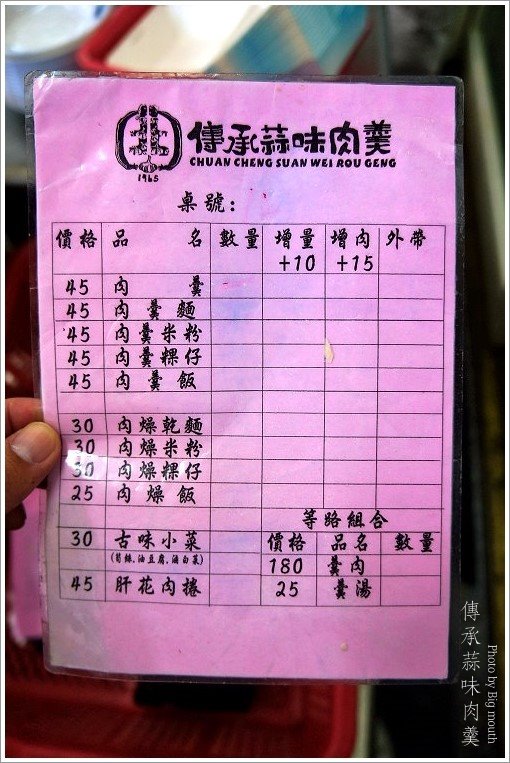 傳承蒜味肉羹
CHUAN CHENG SUAN WEI ROU GENG
1965
桌號:
價格 品名 數量 增量+10 增肉+15 外帶
45 肉羹
45 肉羹麵
45 肉羹米粉
45 肉羹粿仔
45 肉羹飯
30 肉燥乾麵
30 肉燥米粉
30 肉燥粿仔
25 肉燥飯
等路組合
30 古味小菜
(筍絲.油豆腐.滷白菜)
價格 品名 數量
180 羹肉
45 肝花肉捲
25 羹湯
傳承蒜味肉羹
Photo by Big mouth